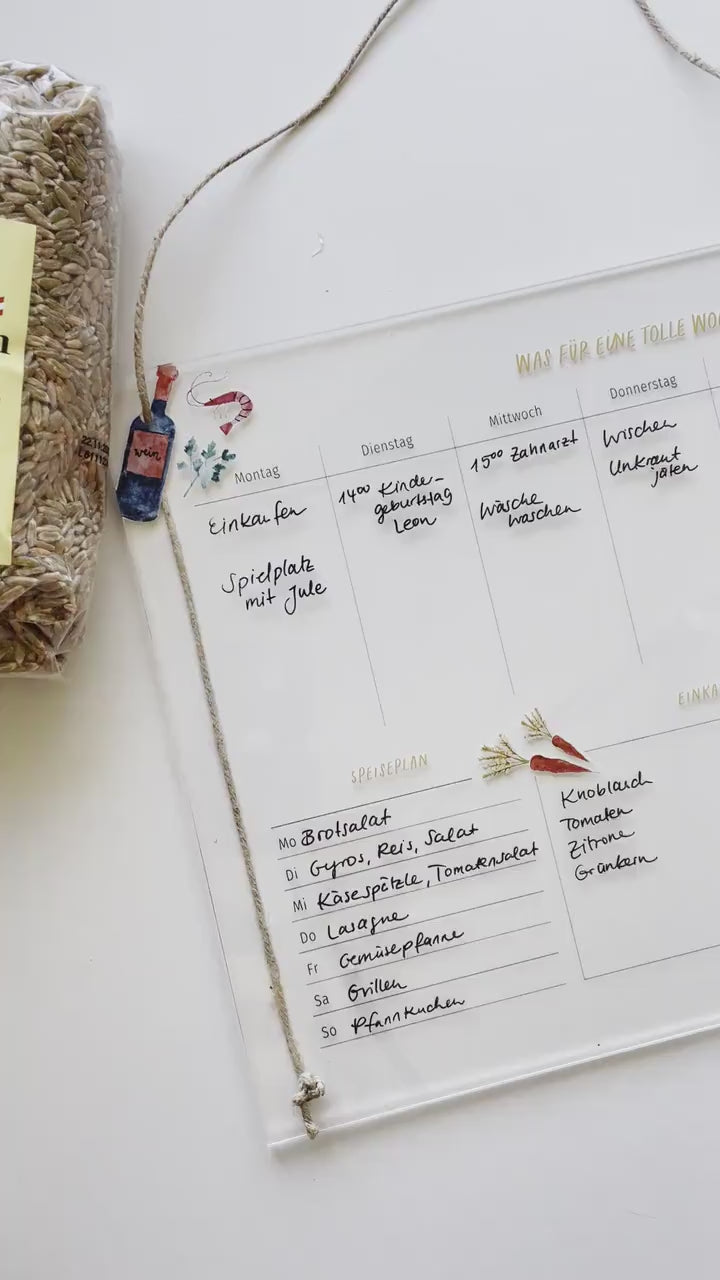 WAS FÜR EINE TOLLE
Montag
Einkaufen
Spielplatz
mit Jule
Dienstag
14⁰⁰ Kinder-
geburtstag
Leon
Mittwoch
15⁰⁰ Zahnarzt
Wäsche
waschen
Donnerstag
Wischen
Unkraut
jäten
wein
SPEISEPLAN
Mo Brotsalat
Di Gyros, Reis, Salat
Mi Käsespätzle, Tomatensalat
Do Lasagne
Fr Gemüsepfanne
Sa Grillen
So Pfannkuchen
Knoblauch
Tomaten
Zitrone
Grünkern